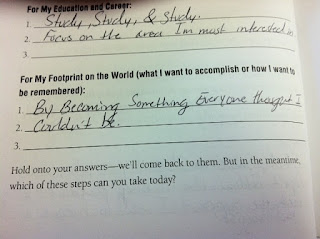 For My Education and Career:
1. Study, Study, & Study.
2. Focus on the area I'm must interested in
3.
For My Footprint on the World (what I want to accomplish or how I want to
be remembered):
1. By Becoming Something Everyone thougut I
2. Couldn't be.
3.
Hold onto your answers—we'll come back to them. But in the meantime,
which of these steps can you take today?